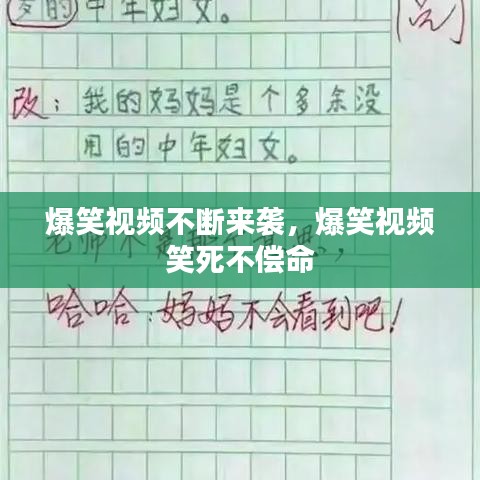 岁的中年妇女。
改：我的妈妈是个多余没
用的中年妇女。
爆笑视频不断来袭，爆笑视频
笑死不偿命
老师不是
哈哈：妈妈不会看到吧！